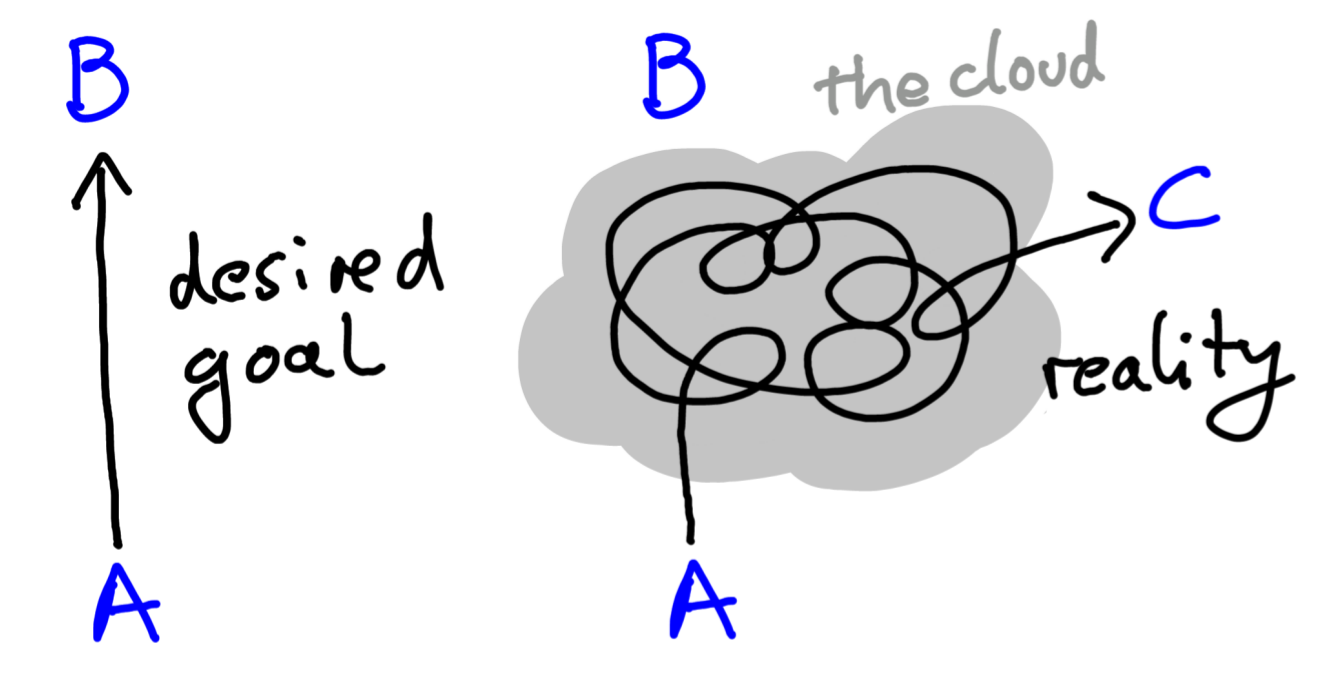 B
desired
goal
A
B
the cloud
C
reality
A